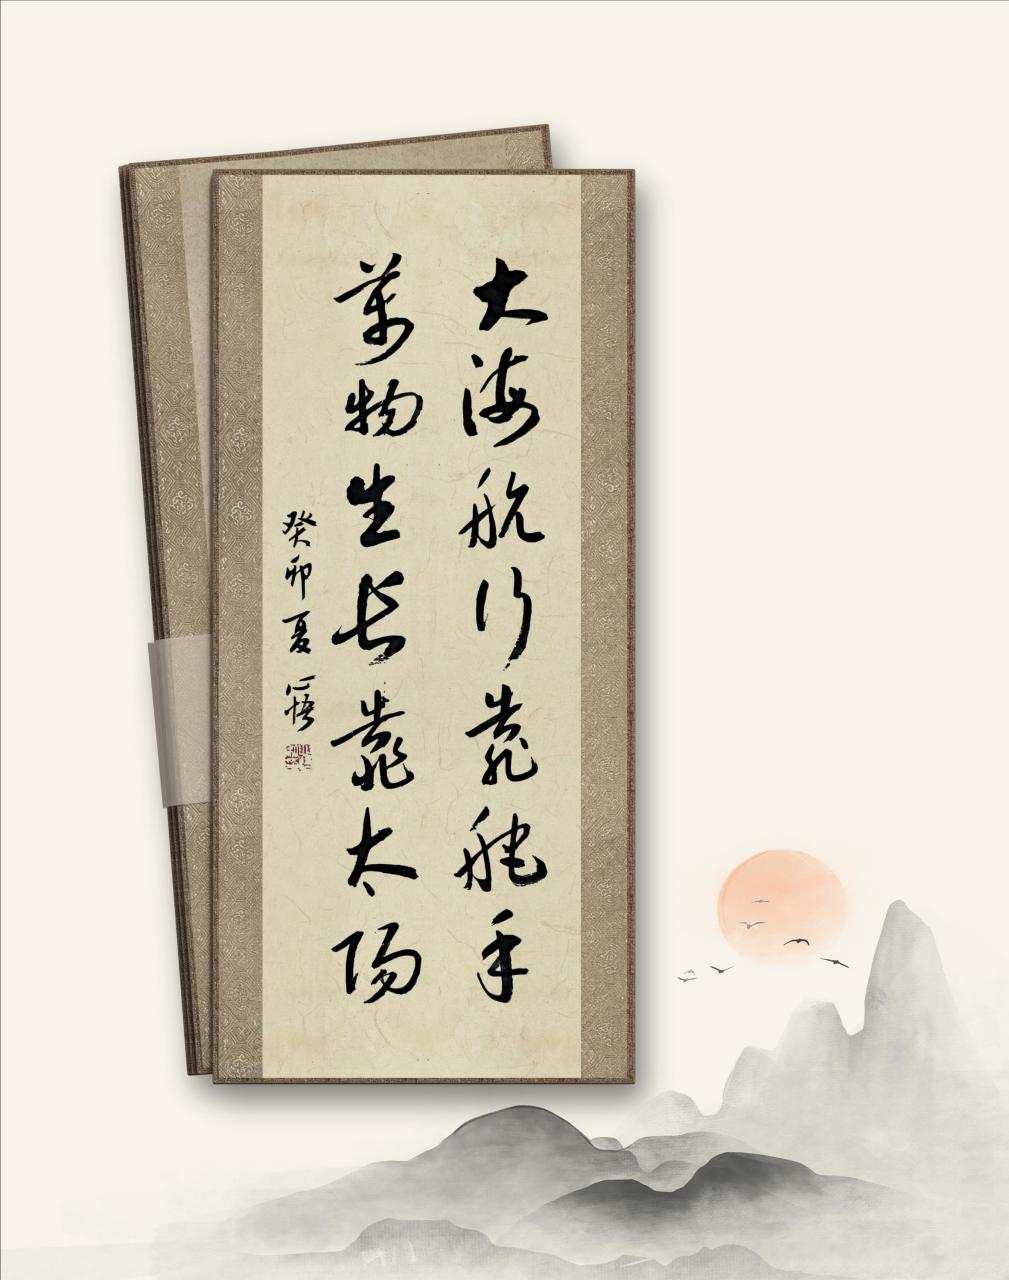 大海航行靠舵手
萬物生长靠太阳
癸卯夏 心悟